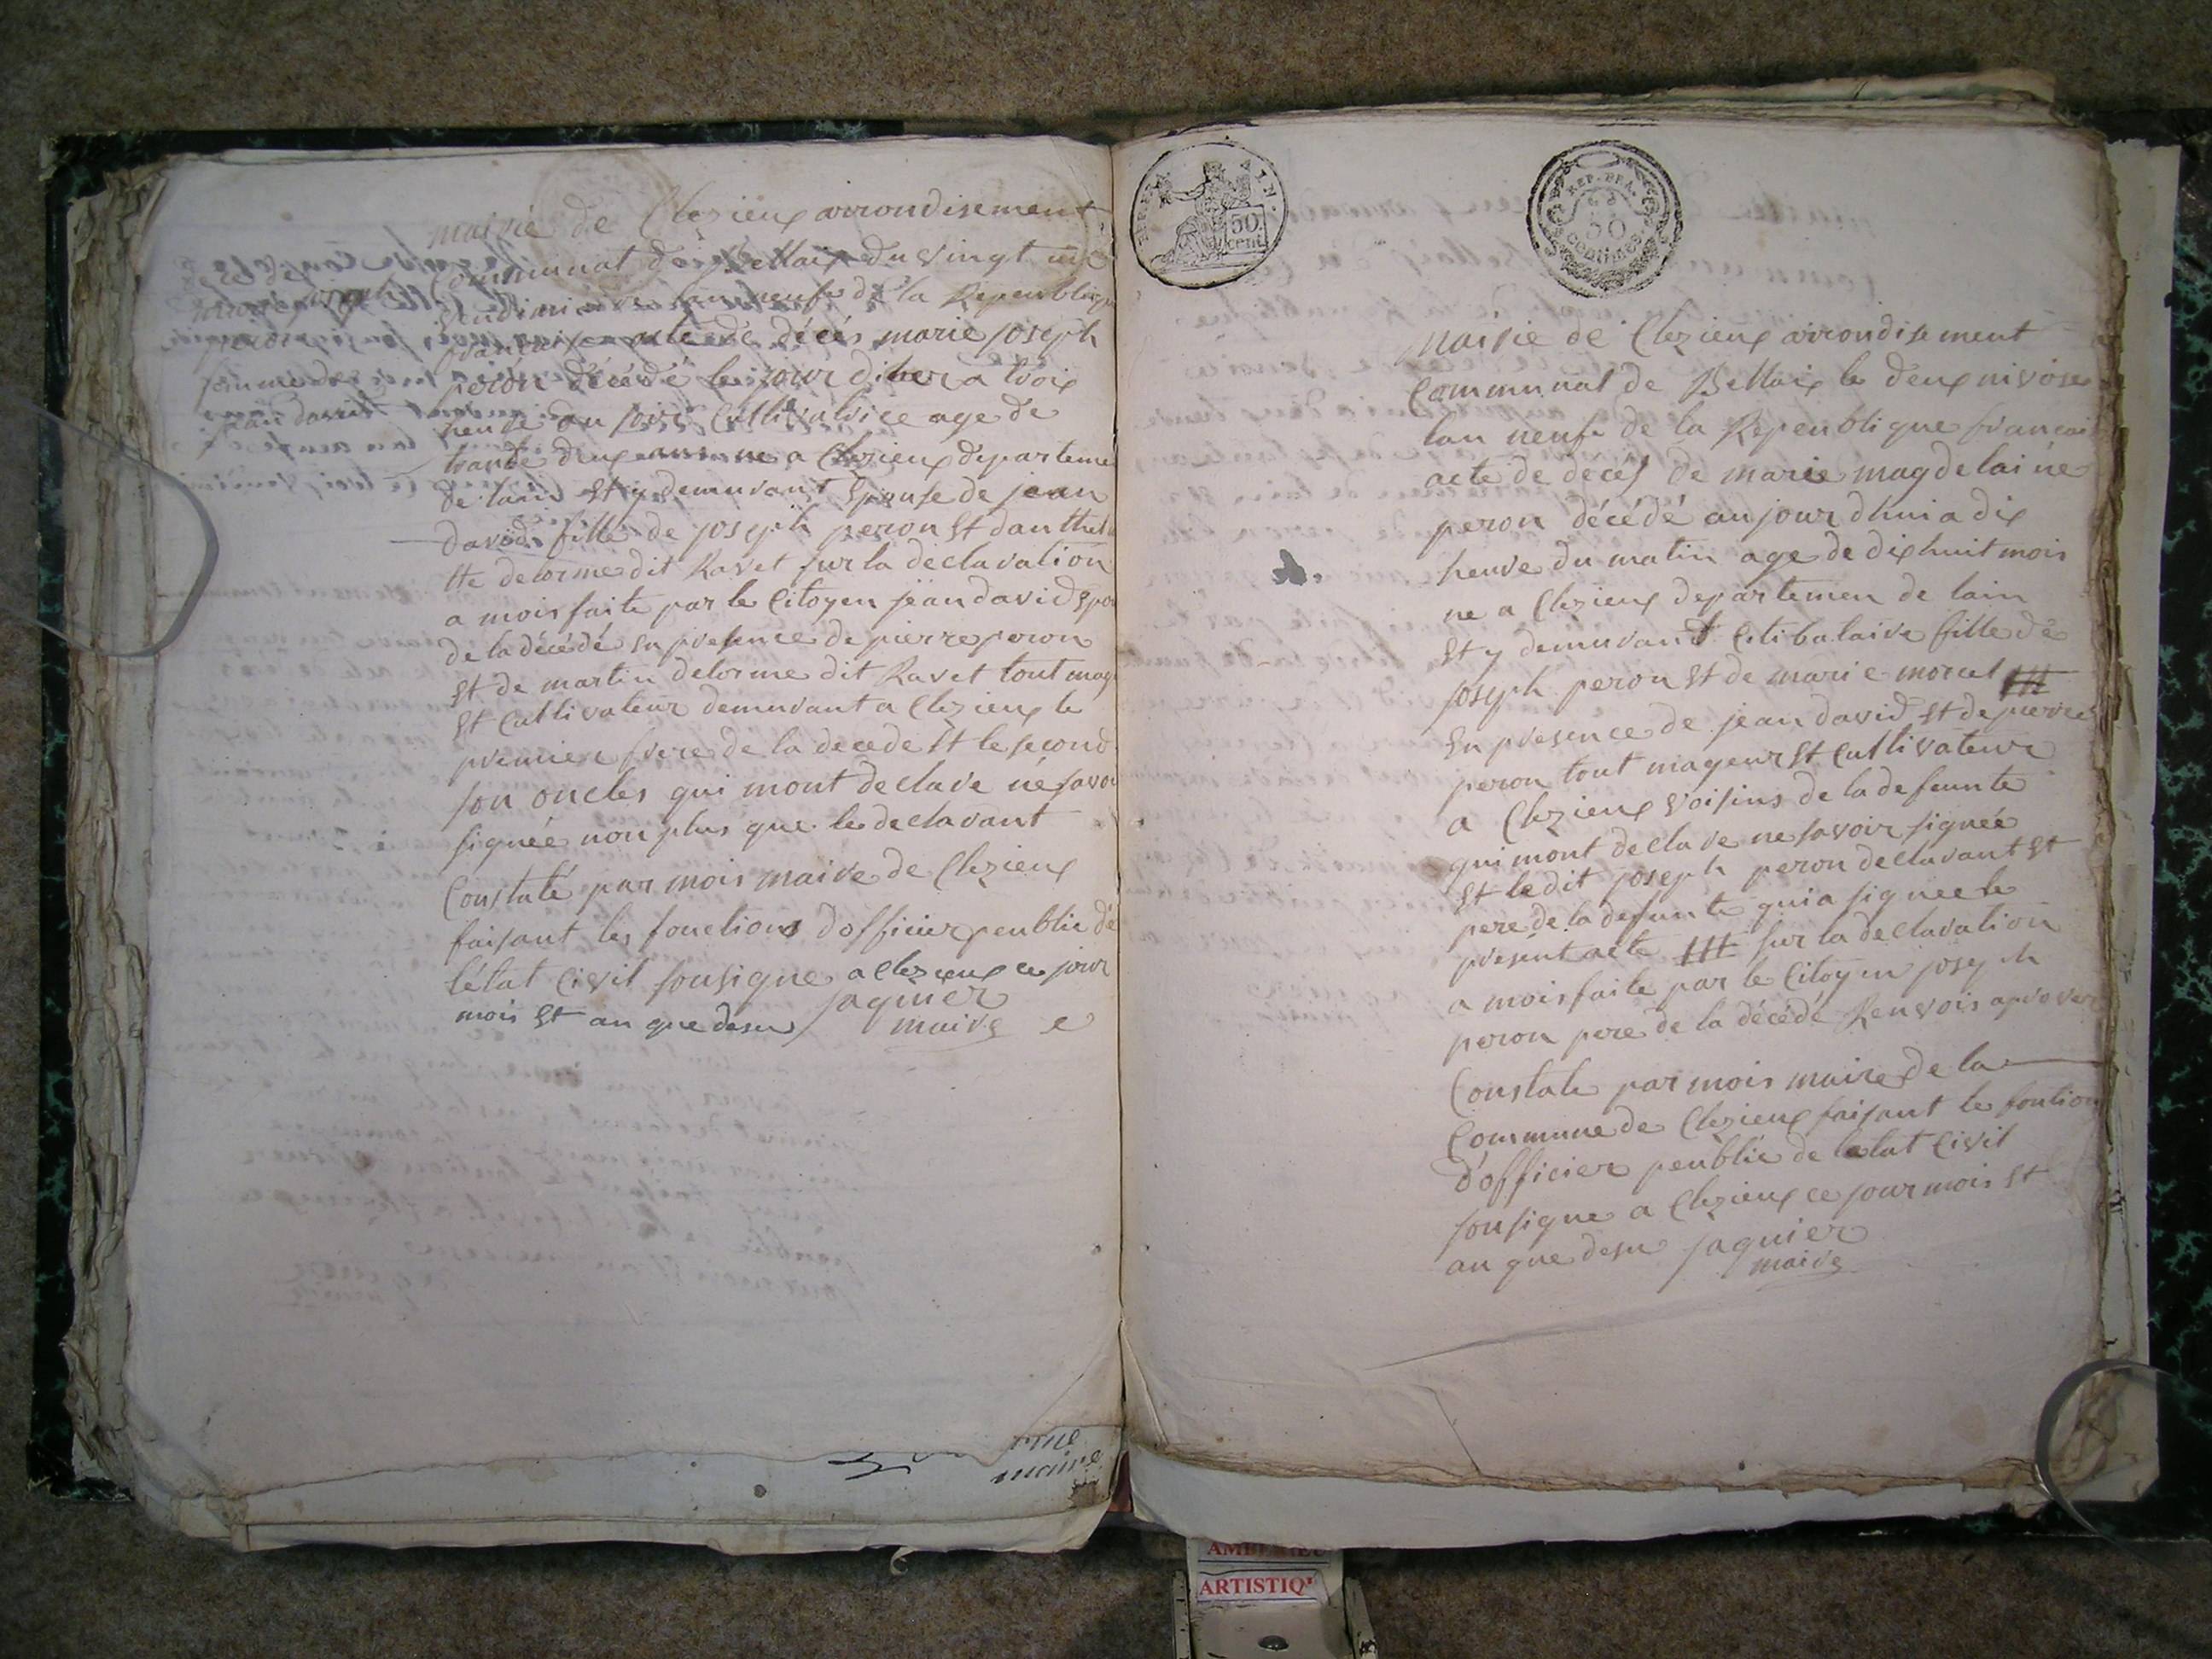 mairie de Clezieux arrondisement
Communat de Bellaix du vingt un
vendimiaire lan neufe de la Repeublique
marie joseph
peron
femme de
jean david
francaise acte de décés marie joseph
peron décédé le jour dhier a troix
heure du soir Cultivatrice age de
trante deux ans ne a Clezieux departeme
de lain Et y demurant Epouse de jean
david fille de joseph peron Et danthel
tte delorme dit Ravet sur la declaration
a mois faite par le Citoyen jean david Epou
de la décédé En presence de pierre peron
Et de martin delorme dit Ravet tout maj
Et Cultivateur demurant a Clezieux le
premier frere de la decede Et le second
son oncles qui mont declare né savoi
signée non plus que le declarant
Constaté par mois maire de Clezieux
faisant les fonctions dofficier peublic de
létat Civil sousigne a Clezieux ce jour
mois Et an que desu jaquier
maire
rue
maire
REP. FRA.
50
cent.
REP. FRA.
50
centimes
mairie de Clezieux arrondisement
Communal de Bellaix le deux nivose
lan neufe de la Repeublique francais
acte de décés de marie magdelaine
peron décédé aujourdhui a dix
heure du matin age de dixhuit mois
ne a Clezieux departemen de lain
Et y demurant Celibataire fille de
joseph peron Et de marie morel ///
En presence de jean david Et de pierre
peron tout mageur Et Cultivateur
a Clezieux Voisins de la defeunte
qui mont declare ne savoir signée
Et ledit joseph peron declarant Et
pere de la defunte qui a signee le
present acte /// sur la declaration
a mois faite par le Citoyen joseph
peron pere de la décédé Renvois aprover
Constate par mois maire de la
Commune de Clezieux faisant le fontion
d'officier peublic de letat Civil
sousigne a Clezieux ce jour mois Et
an que desu jaquier
maire
ARTISTIQ